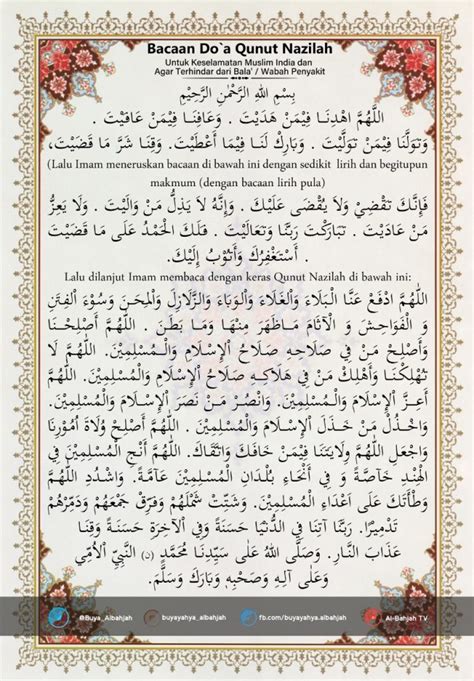 Bacaan Do`a Qunut Nazilah
Untuk Keselamatan Muslim India dan
Agar Terhindar dari Bala' / Wabah Penyakit
بِسْمِ اللهِ الرَّحْمٰنِ الرَّحِيْمِ
اَللّٰهُمَّ اهْدِنَـا فِيْمَنْ هَدَيْتَ . وَعَافِنَـا فِيْمَنْ عَافَيْتَ .
وَتَوَلَّنَا فِيْمَنْ تَوَلَّيْتَ . وَبَارِكْ لَنَـا فِيْمَا أَعْطَيْتَ. وَقِنَا شَرَّ مَا قَضَيْتَ،
(Lalu Imam meneruskan bacaan di bawah ini dengan sedikit lirih dan begitupun
makmum (dengan bacaan lirih pula)
فَإِنَّكَ تَقْضِيْ وَلَا يُقْضَى عَلَيْكَ . وَإِنَّهُ لَا يَذِلُّ مَنْ وَالَيْتَ . وَلَا يَعِزُّ
مَنْ عَادَيْتَ . تَبَارَكْتَ رَبَّنَا وَتَعَالَيْتَ . فَلَكَ الْحَمْدُ عَلَى مَا قَضَيْتَ
. أَسْتَغْفِرُكَ وَأَتُوْبُ إِلَيْكَ.
Lalu dilanjut Imam membaca dengan keras Qunut Nazilah di bawah ini:
اَللّٰهُمَّ ادْفَعْ عَنَّا الْبَلَاءَ وَالْغَلَاءَ وَالْوَبَاءَ وَالزَّلَازِلَ وَالْمِحَنَ وَسُوْءَ الْفِتَنِ
وَ الْفَوَاحِشَ وَ الْآثَامَ مَـاظَهَرَ مِنْهَـا وَمَـا بَطَنَ . اَللّٰهُمَّ أَصْلِحْنَـا
وَأَصْلِحْ مَنْ فِيْ صَلَاحِهِ صَلَاحُ الْإِسْلَامِ وَالْـمُسْلِمِيْنَ. اَللّٰهُمَّ لَا
تُهْلِكْنَـا وَأَهْلِكْ مَنْ فِيْ هَلَاكِـهِ صَلَاحُ الْإِسْلَامِ وَالْمُسْلِمِيْنَ. اَللّٰهُمَّ
أَعِزَّ الْإِسْلَامَ وَالْمُسْلِمِيْنَ. وَانْصُرْ مَنْ نَصَرَ الْإِسْلَامَ وَالْمُسْلِمِيْنَ
وَاخْذُلْ مَنْ خَذَلَ الْإِسْلَامَ وَالْمُسْلِمِيْنَ. اَللّٰهُمَّ أَصْلِحْ وُلَاةَ أُمُوْرِنَا
وَاجْعَلِ اللّٰهُمَّ وِلَايَتَنَا فِيْمَنْ خَافَكَ وَاتَّقَاكَ. اَللّٰهُمَّ أَنْجِ الْمُسْلِمِيْنَ فِي
الْهِنْدِ خَاصَّةً وَ فِيْ أَنْحَاءِ بُلْدَانِ الْمُسْلِمِيْنَ عَآمَّةً. وَاشْدُدِ اللّٰهُمَّ
وَطْأَتَكَ عَلَى أَعْدَاءِ الْمُسْلِمِيْنَ. وَشَتِّتْ شَمْلَهُمْ وَفَرِّقْ جَمْعَهُمْ وَدَمِّرْهُمْ
تَدْمِيْرًا. رَبَّنَا آتِنَا فِي الدُّنْيَا حَسَنَةً وَفِي الْآخِرَةِ حَسَنَةً وَقِنَا
عَذَابَ النَّارِ. وَصَلَّى اللهُ عَلَى سَيِّدِنَا مُحَمَّدٍ (ن) النَّبِيِّ الْأُمِّيِّ
وَعَلَى آلِهِ وَصَحْبِهِ وَبَارَكَ وَسَلَّمَ.
@Buya_Albahjah buyayahya_albahjah fb.com/buyayahya.albahjah Al-Bahjah TV